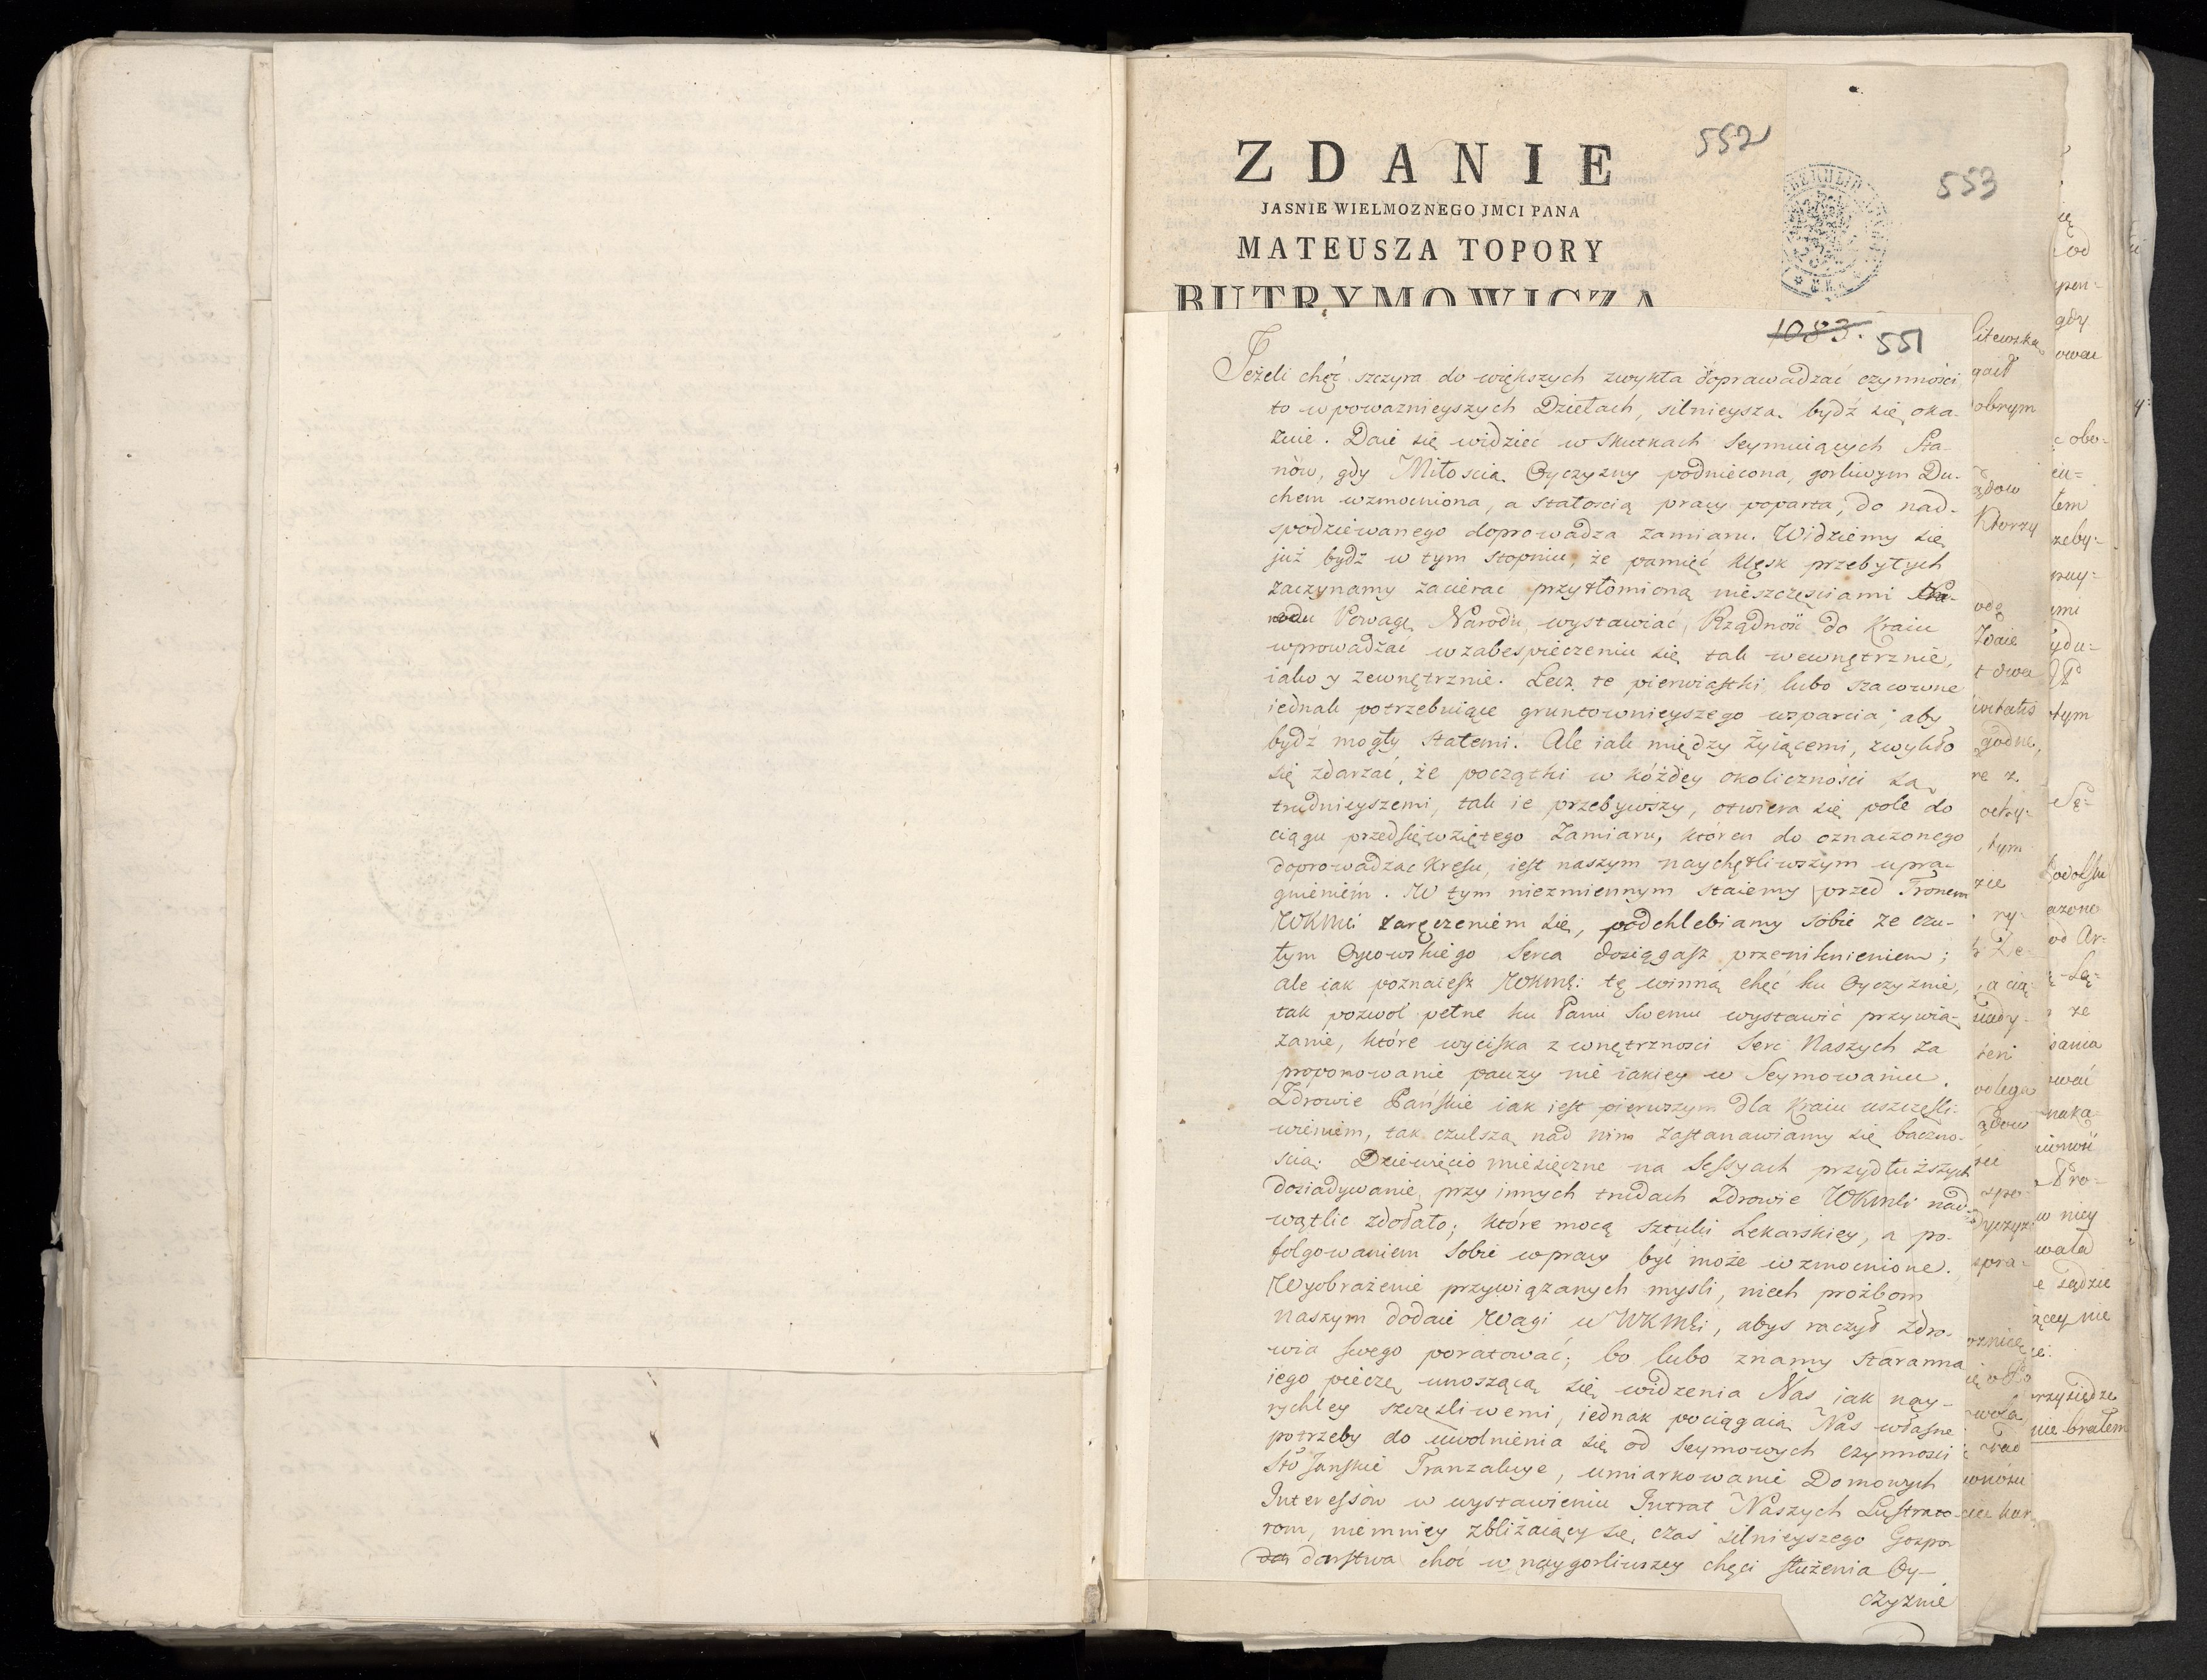 ZDANIE
552
JASNIE WIELMOZNEGO JMCI PANA
553
MATEUSZA TOPORY
BUTRYMOWICZA
1083. 551
Jeżeli chęć szczyra do większych zwykła doprawadzać czynności
to w powaznieyszych Dziełach, silnieysza bydź się oka-
zuie. Daie się widzieć w skutkach Seymuiących Sta-
nów, gdy Miłoscią Oyczyzny podniecona, gorliwym Du-
chem wzmocniona, a stałoscią pracy poparta, do nad-
spodziewanego doprowadza zamiaru. Widziemy się
już bydź w tym stopniu, że pamięć klęsk przebytych
zaczynamy zacierac przytłomioną nieszczęsciami Na-
rodu Powagę Narodu wystawiac, Rządność do Kraiu
wprowadzać w zabespieczeniu się tak wewnętrznie,
iako y zewnętrznie. Lecz te pierwiastki lubo szacowne
iednak potrzebuiące gruntownieyszego wsparcia, aby
bydź mogły stałemi. Ale iak między żyiącemi, zwykło
się zdarzać, że początki w kóżdey okoliczności są
trudnieyszemi, tak ie przebywszy, otwiera się pole do
ciągu przedsięwziętego Zamiaru, któren do oznaczonego
doprowadzac kresu, iest naszym naychętliwszym upra-
gnieniem. W tym niezmiennym staiemy przed Tronem
WKMci zaręczeniem się, podchlebiamy sobie ze czu-
łym Oycowskiego Serca dosięgasz przeniknieniem;
ale iak poznaiesz WKMci tę winną chęć ku Oyczyznie,
tak pozwol pełne ku Panu Swemu wystawić przywią-
zanie, które wyciska z wnętrznosci Serc Naszych za
proponowanie pauzy nie iakiey w Seymowaniu.
Zdrowie Pańskie iak iest pierwszym dla Kraiu uszczęśli-
wieniem, tak czulszą nad nim zastanawiamy się baczno-
scią. Dziewięcio miesięczne na Sessyach przydłuższych
dosiadywanie, przy innych trudach Zdrowie WKMci nad-
wątlic zdołało; które mocą sztuki Lekarskiey, a po-
folgowaniem sobie w pracy być może wzmocnione.
Wyobrażenie przywiązanych mysli, niech proźbom
naszym dodaie Wagi u WKMci, abys raczył Zdro-
wia swego poratować; bo lubo znamy staranną
iego pieczę unoszącą się widzenia Nas jak nay-
rychley szczęśliwemi, iednak pociągaią Nas własne
potrzeby do uwolnienia się od Seymowych czynnosci
Sto Janskie Tranzakcye, umiarkowanie Domowych
Interessów w wystawieniu Intrat Naszych Lustrato-
rom, niemniey zbliżaiący się czas silnieyszego Gospo-
darstwa choć w naygorliwszey chęci służenia Oy-
czyznie